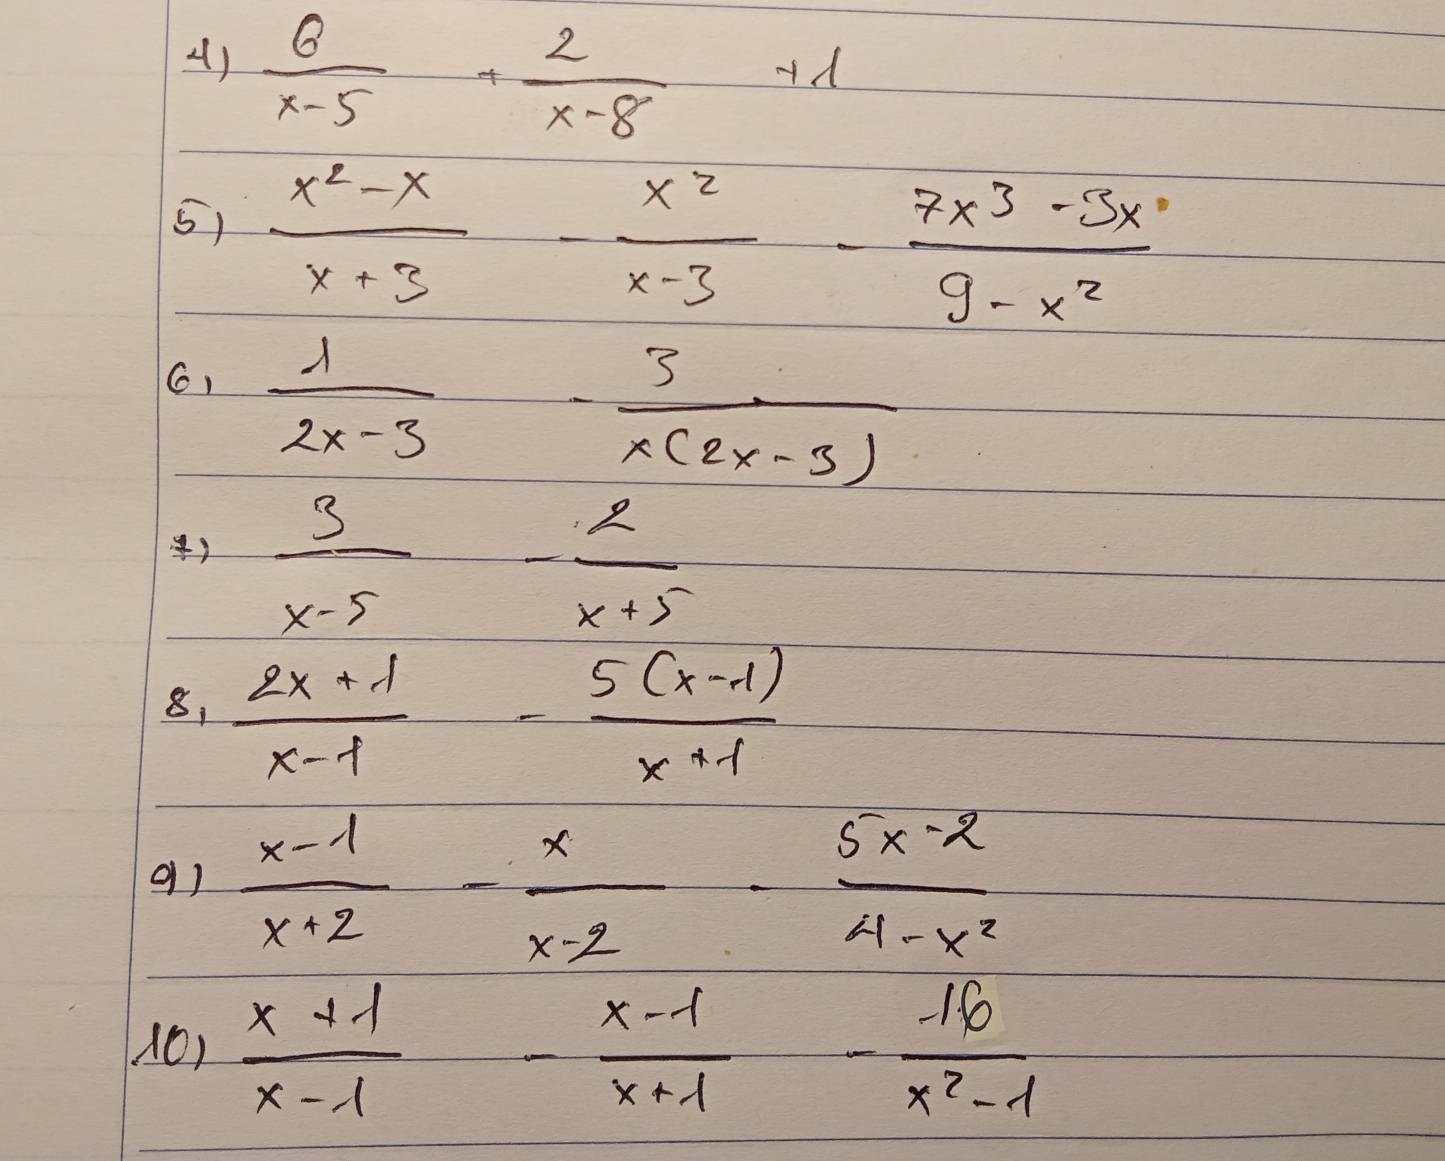 4) 6/(x-5) + 2/(x-8) +1
5) (x²-x)/(x+3) - x²/(x-3) - (7x³-3x)/(9-x²)
6, 1/(2x-3) - 3/(x(2x-3))
7) 3/(x-5) - 2/(x+5)
8, (2x+1)/(x-1) - 5(x-1)/(x+1)
9) (x-1)/(x+2) - x/(x-2) - (5x-2)/(4-x²)
10) (x+1)/(x-1) - (x-1)/(x+1) - 16/(x²-1)